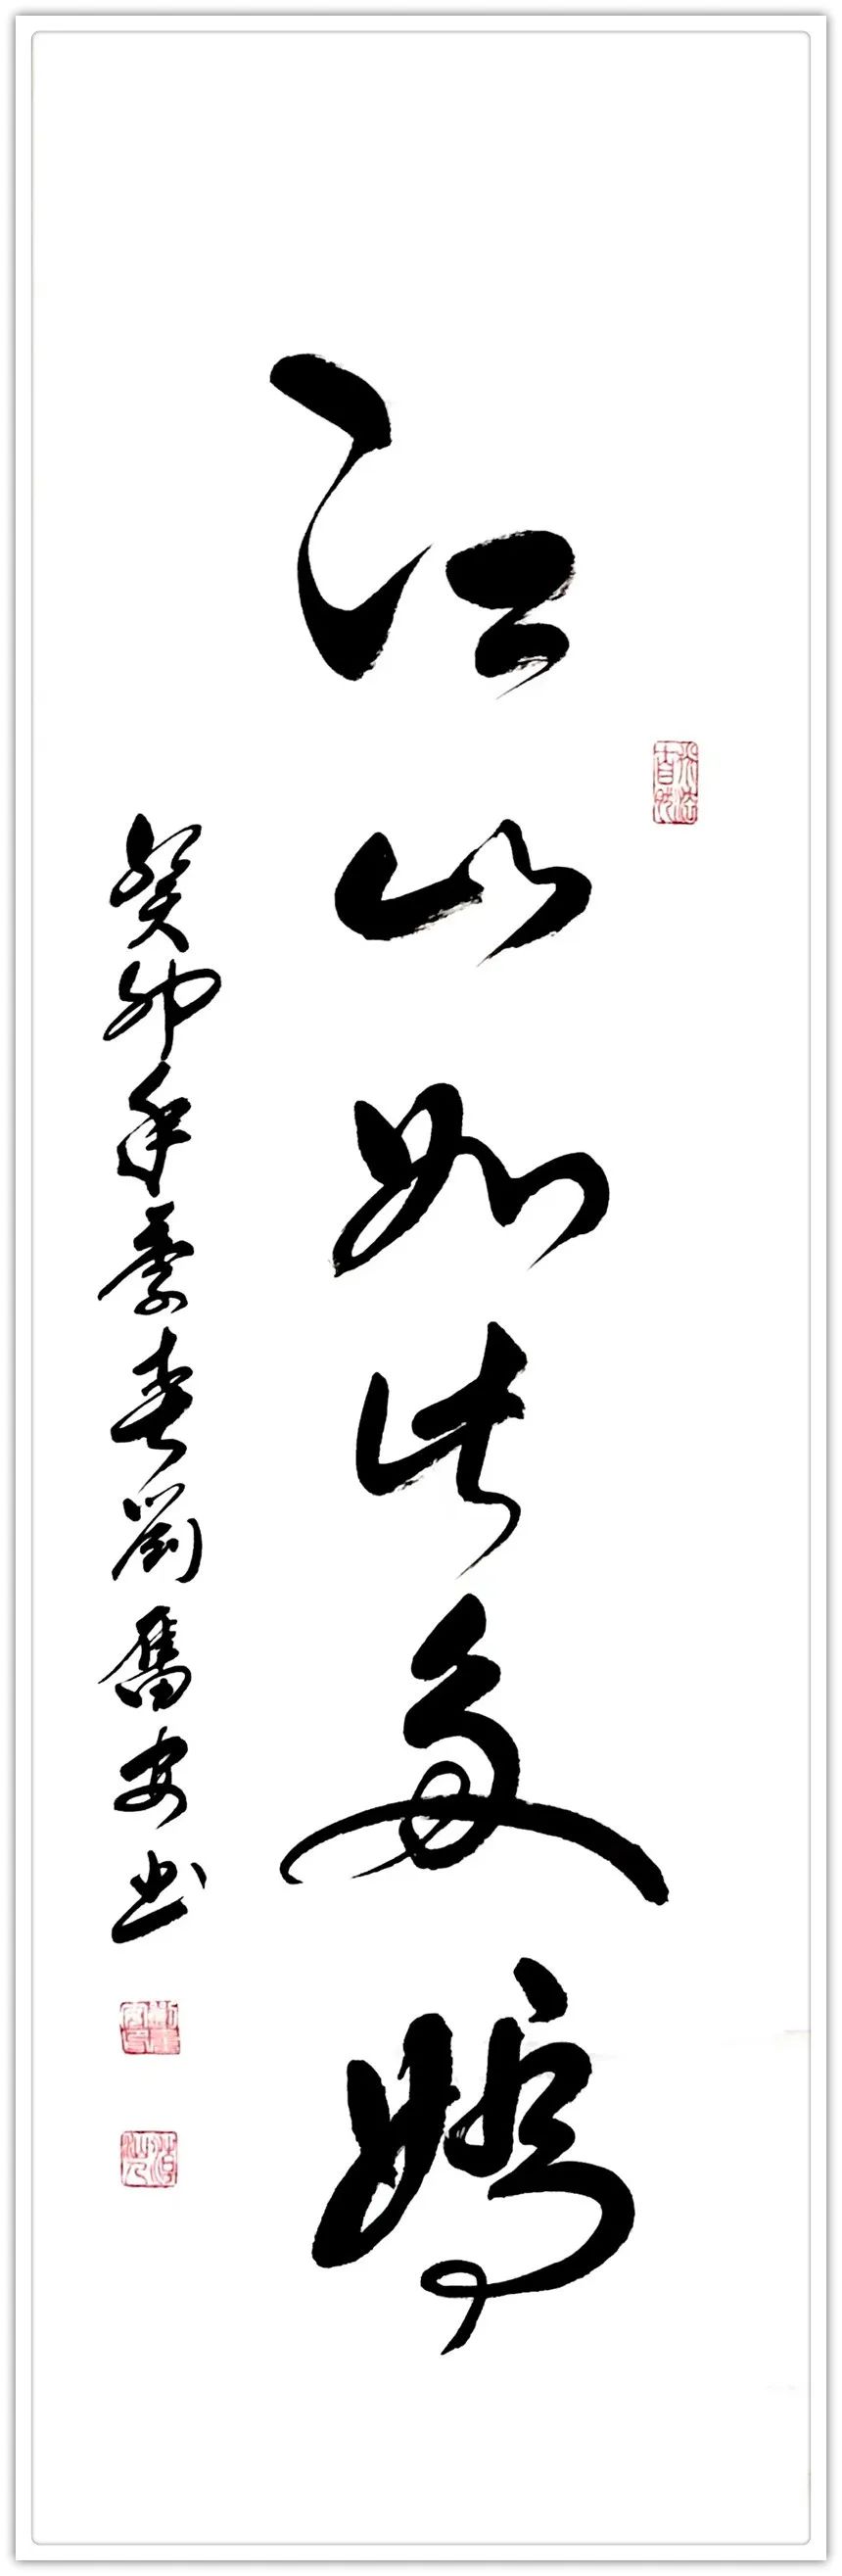 江山如此多娇
癸卯年季春刘奮安书